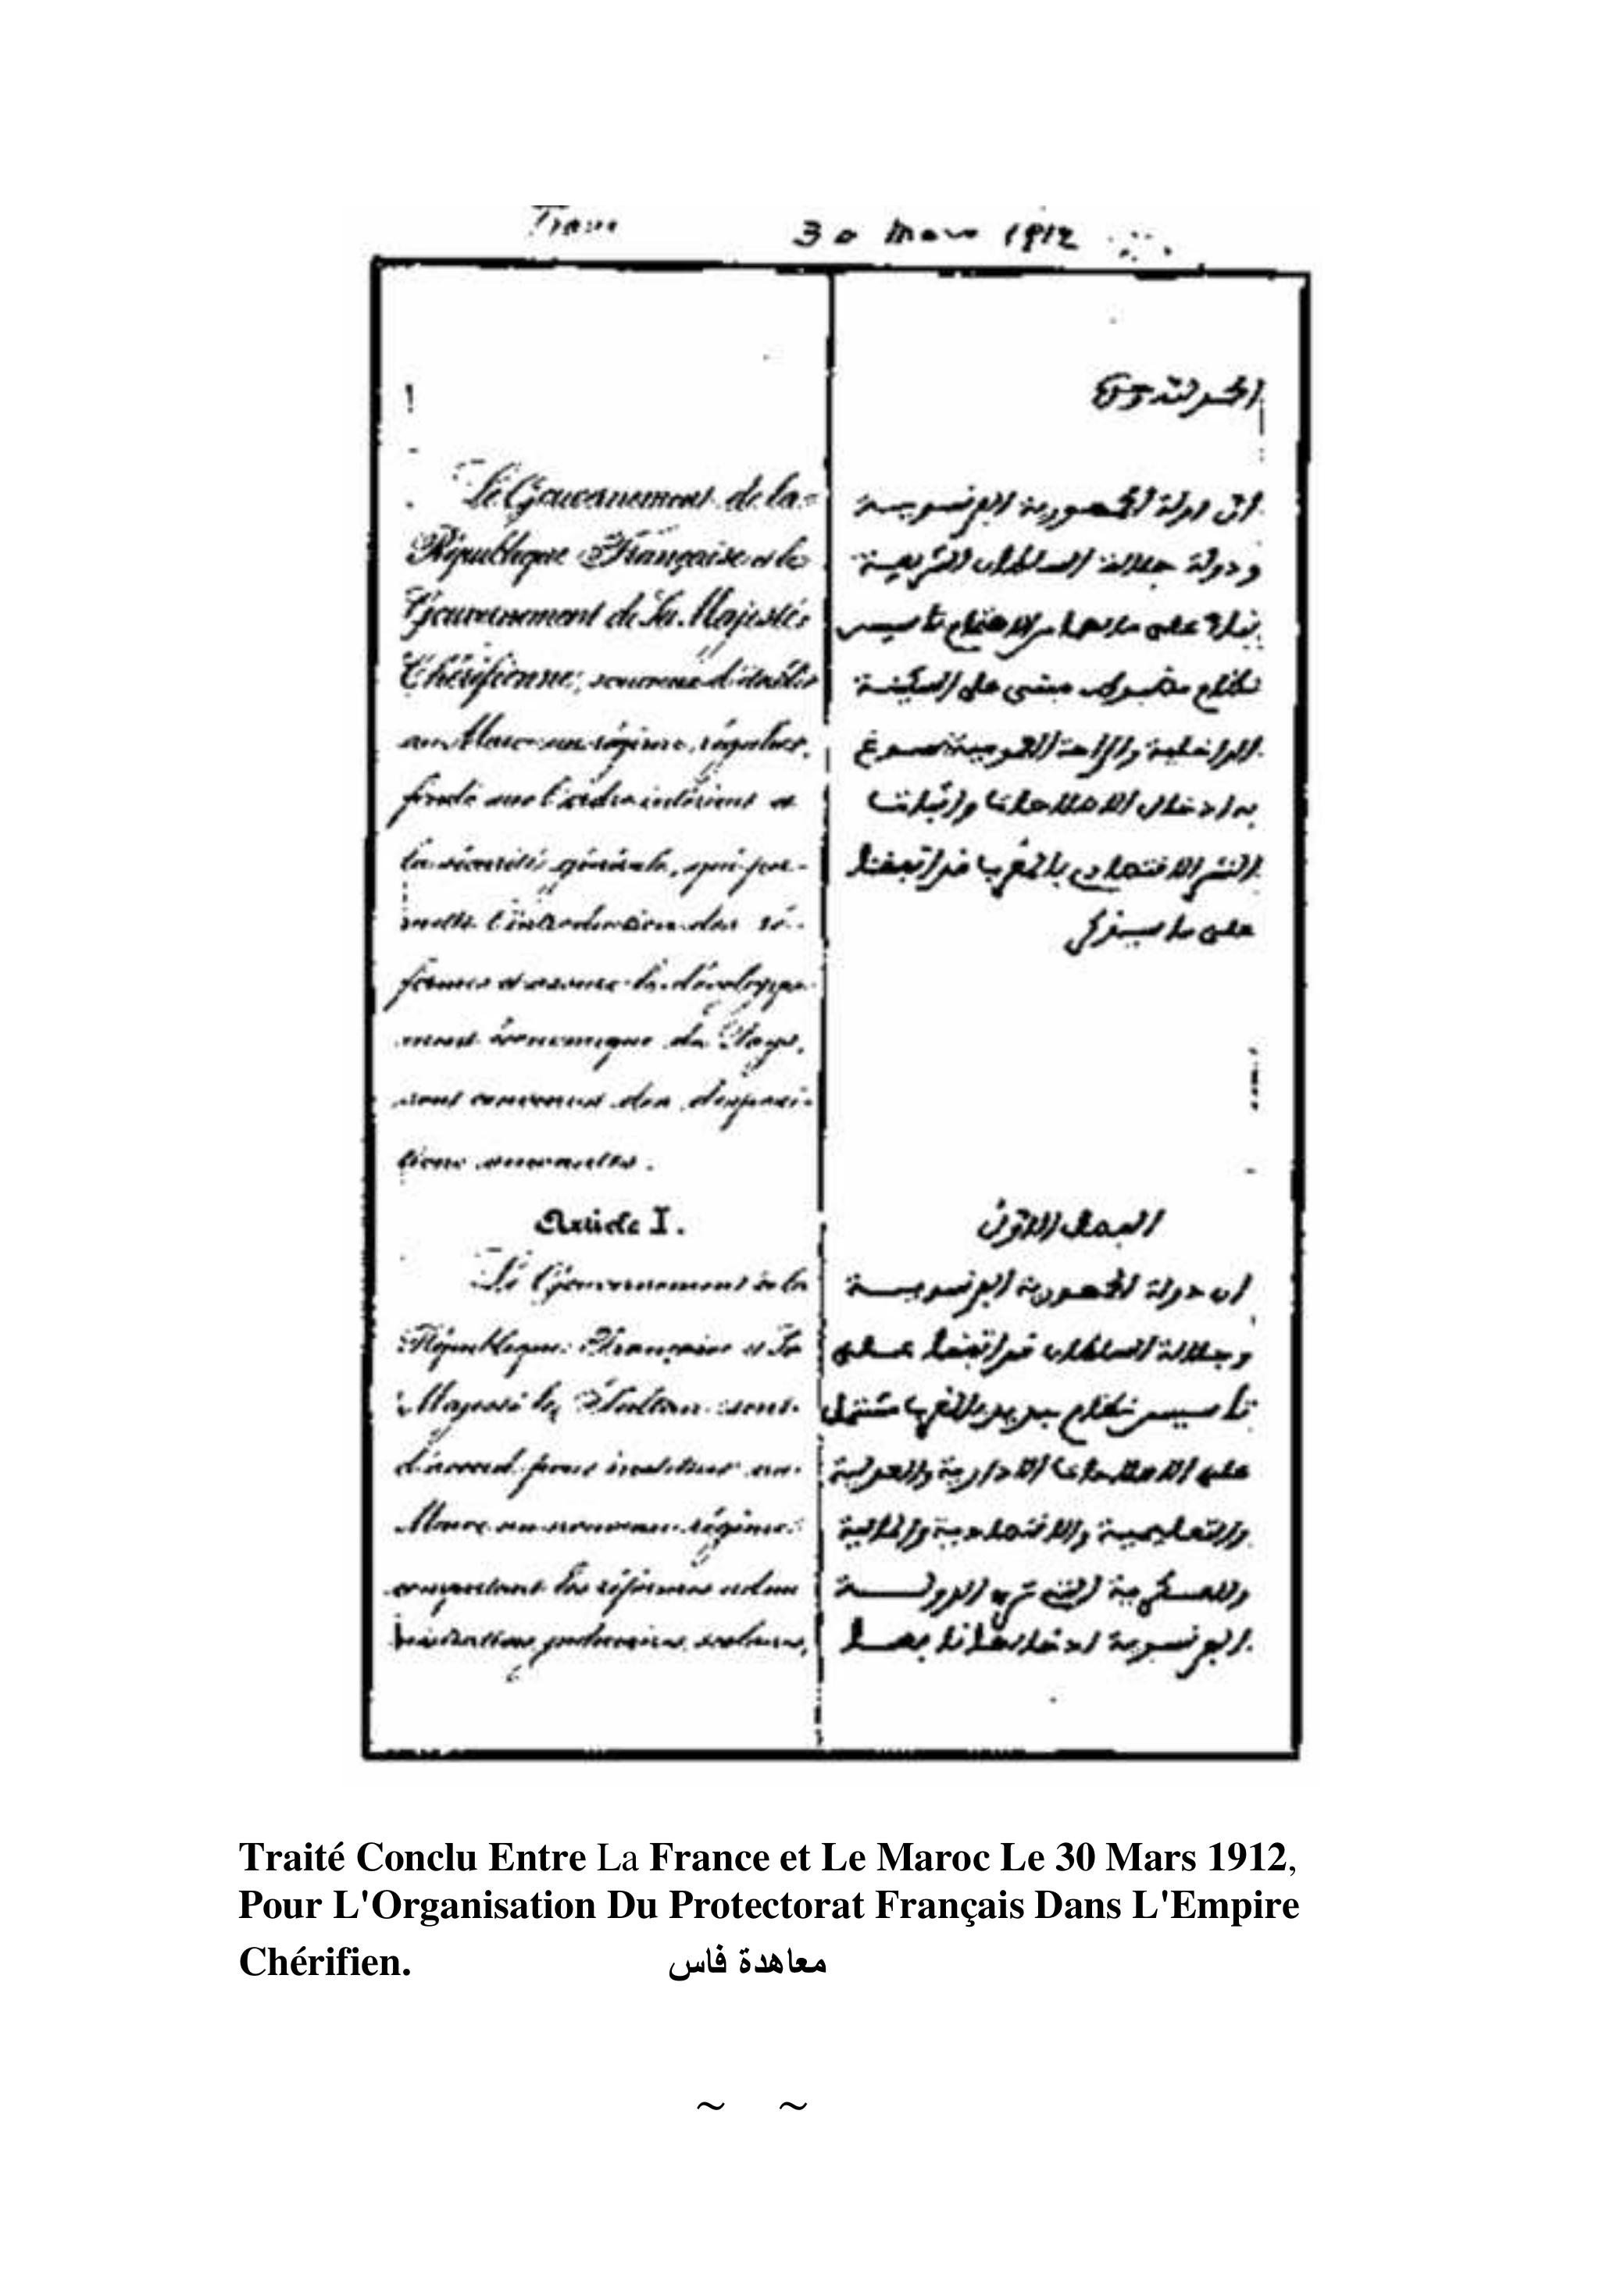 30 Mars 1912
Le Gouvernement de la
République Française et le
Gouvernement de Sa Majesté
Chérifienne, soucieux d'établir
au Maroc un régime régulier,
fondé sur l'ordre intérieur et
la sécurité générale, qui per-
mette l'introduction des ré-
formes et assure le développe-
ment économique du Pays,
sont convenus des disposi-
tions suivantes.
Article I.
Le Gouvernement de la
République Française et Sa
Majesté le Sultan sont
d'accord pour instituer au
Maroc un nouveau régime
comportant les réformes admi
nistratives, judiciaires, scolaires,
الحمد لله وحده
ان دولة الجمهورية الفرنسوية
ودولة جلالة السلطان الشريفة
بناء على ما لهما من الاهتمام بتأسيس
نظام مضبوط مبنى على السكينة
الداخلية والراحة العمومية يسوغ
به ادخال الاصلاحات واثبات
النشر الاقتصادي بالمغرب قد اتفقتا
على ما سيذكر
الفصل الاول
ان دولة الجمهورية الفرنسوية
وجلالة السلطان قد اتفقا على
تأسيس نظام جديد بالمغرب مشتمل
على الاصلاحات الادارية والعدلية
والتعليمية والاقتصادية والمالية
والعسكرية التي ترى الدولة
الفرنسوية ادخالها نافعا
Traité Conclu Entre La France et Le Maroc Le 30 Mars 1912,
Pour L'Organisation Du Protectorat Français Dans L'Empire
Chérifien. معاهدة فاس
~ ~